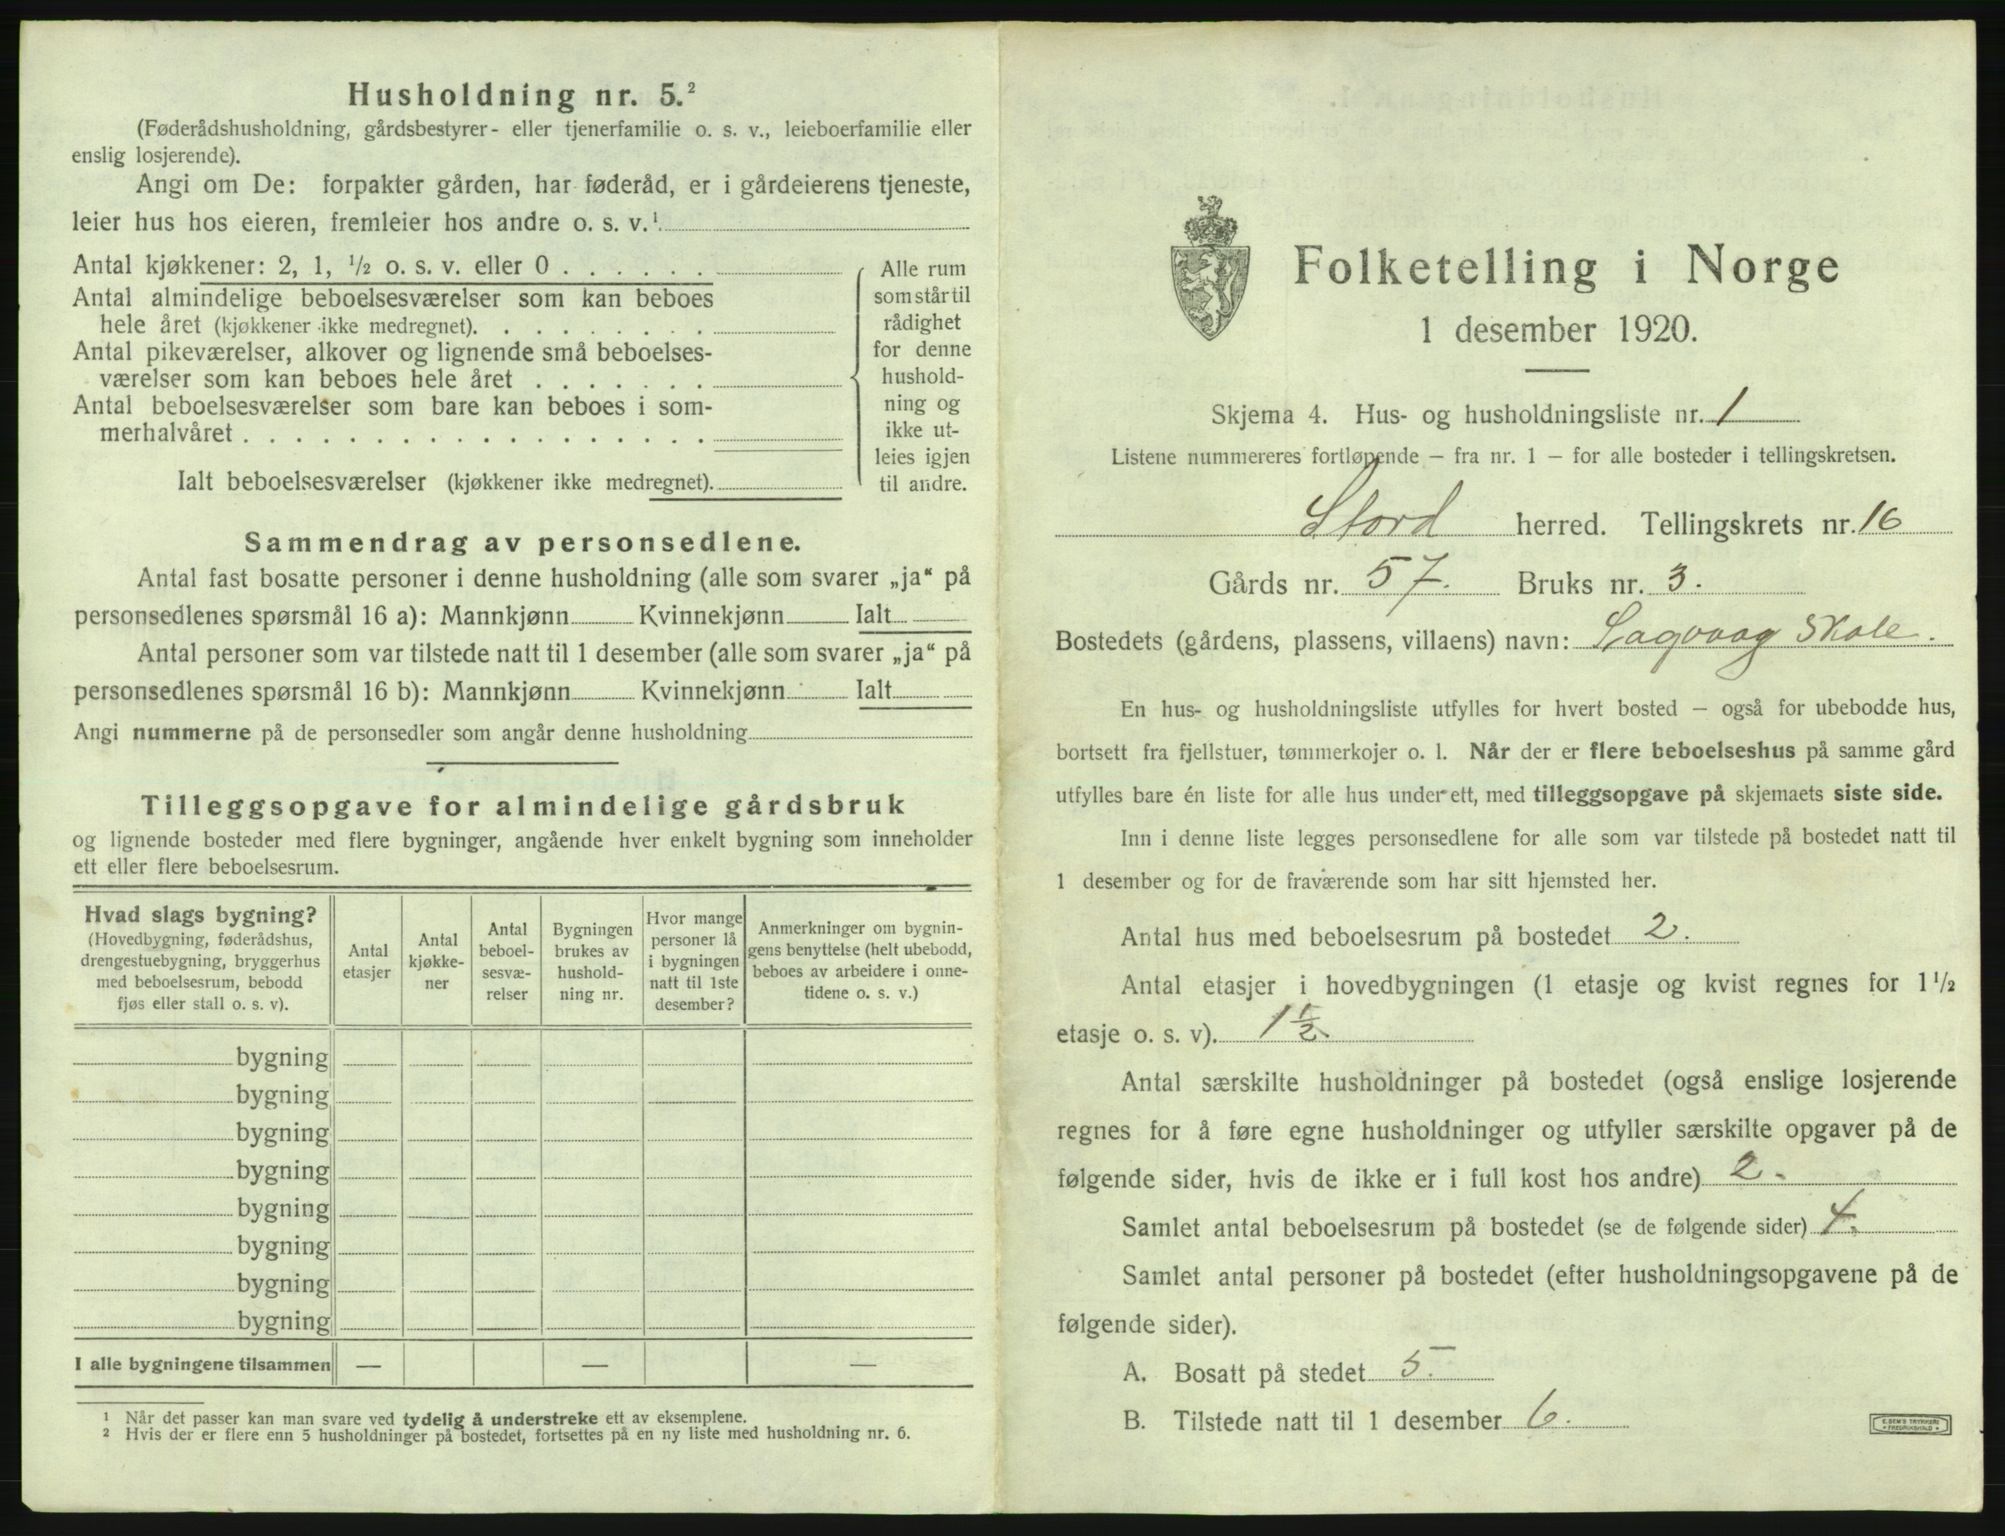 Husholdning nr. 5.²
(Føderådshusholdning, gårdsbestyrer- eller tjenerfamilie o. s. v., leieboerfamilie eller
enslig losjerende).
Angi om De: forpakter gården, har føderåd, er i gårdeierens tjeneste,
leier hus hos eieren, fremleier hos andre o. s. v.¹
Antal kjøkkener: 2, 1, ½ o. s. v. eller 0 . . . . . .
Antal almindelige beboelsesværelser som kan beboes
hele året (kjøkkener ikke medregnet). . . . . . . . .
Antal pikeværelser, alkover og lignende små beboelses-
værelser som kan beboes hele året . . . . . . .
Antal beboelsesværelser som bare kan beboes i som-
merhalvåret . . . . . . . . . . . . . . . . . .
Ialt beboelsesværelser (kjøkkener ikke medregnet).
Alle rum
som står til
rådighet
for denne
hushold-
ning og
ikke ut-
leies igjen
til andre.
Sammendrag av personsedlene.
Antal fast bosatte personer i denne husholdning (alle som svarer „ja“ på
personsedlenes spørsmål 16 a): Mannkjønn Kvinnekjønn Ialt
Antal personer som var tilstede natt til 1 desember (alle som svarer „ja“ på
personsedlenes spørsmål 16 b): Mannkjønn Kvinnekjønn Ialt
Angi nummerne på de personsedler som angår denne husholdning
Tilleggsopgave for almindelige gårdsbruk
og lignende bosteder med flere bygninger, angående hver enkelt bygning som inneholder
ett eller flere beboelsesrum.
Hvad slags bygning?
(Hovedbygning, føderådshus,
drengestuebygning, bryggerhus
med beboelsesrum, bebodd
fjøs eller stall o. s. v).
Antal
etasjer
Antal
kjøkke-
ner
Antal
beboel-
sesvæ-
relser
Bygningen
brukes av
hushold-
ning nr.
Hvor mange
personer lå
i bygningen
natt til 1ste
desember?
Anmerkninger om bygnin-
gens benyttelse (helt ubebodd,
beboes av arbeidere i onne-
tidene o. s. v.)
bygning
bygning
bygning
bygning
bygning
bygning
bygning
bygning
I alle bygningene tilsammen — — —
¹ Når det passer kan man svare ved tydelig å understreke ett av eksemplene.
² Hvis der er flere enn 5 husholdninger på bostedet, fortsettes på en ny liste med husholdning nr. 6.
Folketelling i Norge
1 desember 1920.
Skjema 4. Hus- og husholdningsliste nr. 1
Listene nummereres fortløpende – fra nr. 1 – for alle bosteder i tellingskretsen.
Stord herred. Tellingskrets nr. 16
Gårds nr. 57. Bruks nr. 3.
Bostedets (gårdens, plassens, villaens) navn: Sagvaag Skole.
En hus- og husholdningsliste utfylles for hvert bosted – også for ubebodde hus,
bortsett fra fjellstuer, tømmerkojer o. l. Når der er flere beboelseshus på samme gård
utfylles bare én liste for alle hus under ett, med tilleggsopgave på skjemaets siste side.
Inn i denne liste legges personsedlene for alle som var tilstede på bostedet natt til
1 desember og for de fraværende som har sitt hjemsted her.
Antal hus med beboelsesrum på bostedet 2.
Antal etasjer i hovedbygningen (1 etasje og kvist regnes for 1½
etasje o. s. v). 1½.
Antal særskilte husholdninger på bostedet (også enslige losjerende
regnes for å føre egne husholdninger og utfyller særskilte opgaver på de
følgende sider, hvis de ikke er i full kost hos andre) 2.
Samlet antal beboelsesrum på bostedet (se de følgende sider) 4.
Samlet antal personer på bostedet (efter husholdningsopgavene på de
følgende sider).
A. Bosatt på stedet 5.
B. Tilstede natt til 1 desember 6.
E. SEM'S TRYKKERI
FREDRIKSHALD